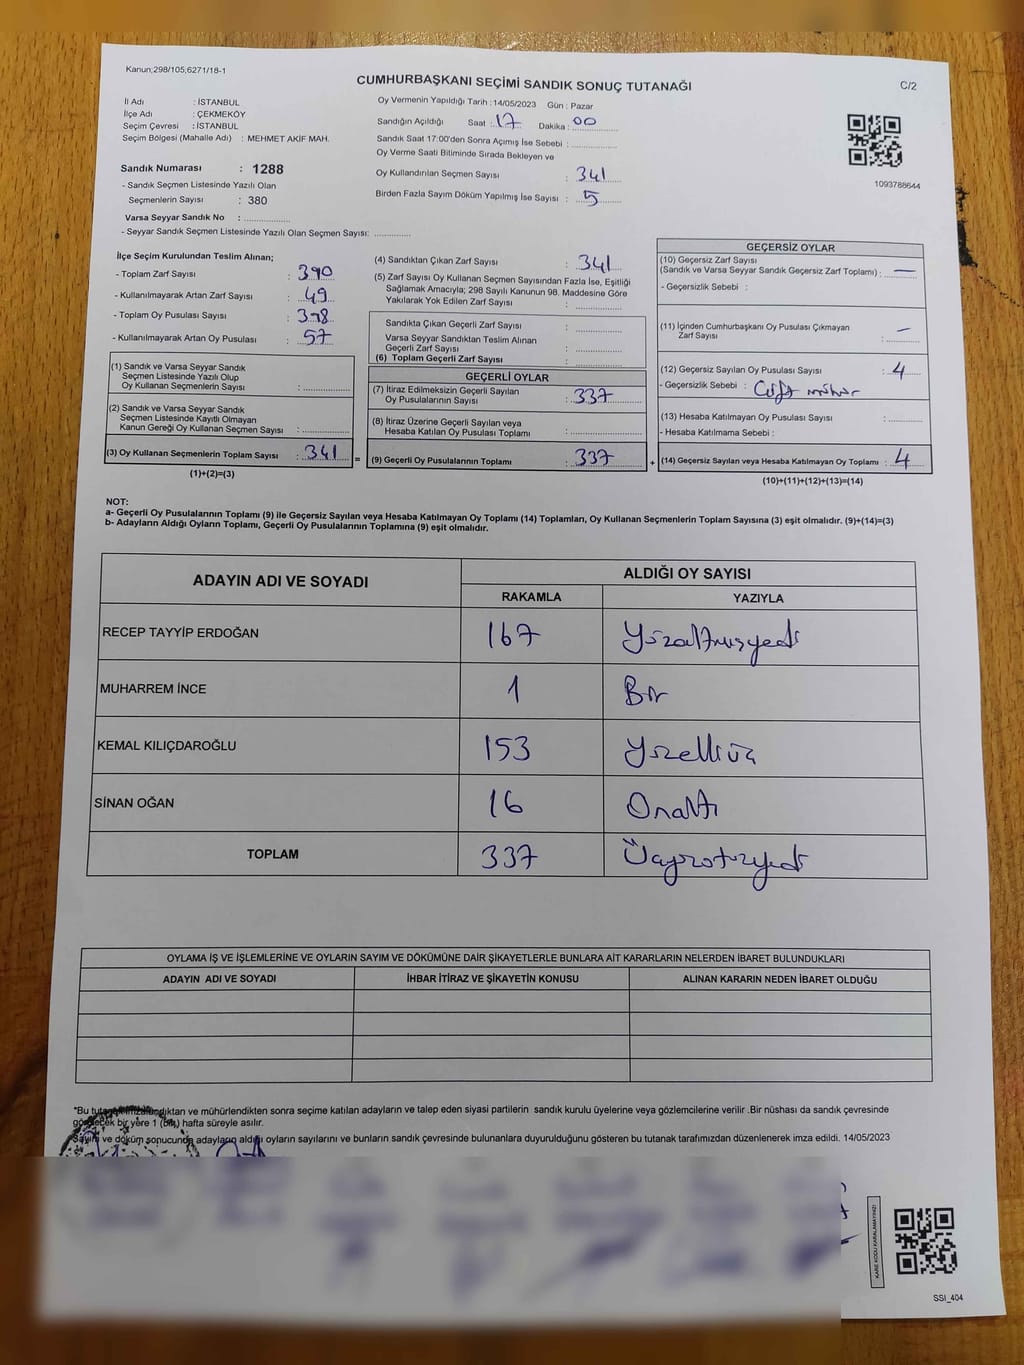 Kanun;298/105;6271/18-1
CUMHURBAŞKANI SEÇİMİ SANDIK SONUÇ TUTANAĞI
C/2
İl Adı : İSTANBUL
İlçe Adı : ÇEKMEKÖY
Seçim Çevresi : İSTANBUL
Seçim Bölgesi (Mahalle Adı) : MEHMET AKİF MAH.
Sandık Numarası : 1288
- Sandık Seçmen Listesinde Yazılı Olan
Seçmenlerin Sayısı : 380
Varsa Seyyar Sandık No : ................
- Seyyar Sandık Seçmen Listesinde Yazılı Olan Seçmen Sayısı: ............
Oy Vermenin Yapıldığı Tarih : 14/05/2023 Gün : Pazar
Sandığın Açıldığı Saat : 17 Dakika : 00
Sandık Saat 17:00'den Sonra Açımış İse Sebebi : ................
Oy Verme Saati Bitiminde Sırada Bekleyen ve
Oy Kullandırılan Seçmen Sayısı : 341
Birden Fazla Sayım Döküm Yapılmış İse Sayısı : 5
1093788644
İlçe Seçim Kurulundan Teslim Alınan;
- Toplam Zarf Sayısı : 390
- Kullanılmayarak Artan Zarf Sayısı : 49
- Toplam Oy Pusulası Sayısı : 398
- Kullanılmayarak Artan Oy Pusulası : 57
(1) Sandık ve Varsa Seyyar Sandık
Seçmen Listesinde Yazılı Olup
Oy Kullanan Seçmenlerin Sayısı : ............
(2) Sandık ve Varsa Seyyar Sandık
Seçmen Listesinde Kayıtlı Olmayan
Kanun Gereği Oy Kullanan Seçmen Sayısı : ............
(3) Oy Kullanan Seçmenlerin Toplam Sayısı : 341 =
(1)+(2)=(3)
(4) Sandıktan Çıkan Zarf Sayısı : 341
(5) Zarf Sayısı Oy Kullanan Seçmen Sayısından Fazla İse, Eşitliği
Sağlamak Amacıyla; 298 Sayılı Kanunun 98. Maddesine Göre
Yakılarak Yok Edilen Zarf Sayısı : ............
Sandıkta Çıkan Geçerli Zarf Sayısı : ............
Varsa Seyyar Sandıktan Teslim Alınan
Geçerli Zarf Sayısı : ............
(6) Toplam Geçerli Zarf Sayısı : ............
GEÇERLİ OYLAR
(7) İtiraz Edilmeksizin Geçerli Sayılan
Oy Pusulalarının Sayısı : 337
(8) İtiraz Üzerine Geçerli Sayılan veya
Hesaba Katılan Oy Pusulası Toplamı : ............
(9) Geçerli Oy Pusulalarının Toplamı : 337 +
GEÇERSİZ OYLAR
(10) Geçersiz Zarf Sayısı
(Sandık ve Varsa Seyyar Sandık Geçersiz Zarf Toplamı) : —
- Geçersizlik Sebebi :
(11) İçinden Cumhurbaşkanı Oy Pusulası Çıkmayan
Zarf Sayısı : —
(12) Geçersiz Sayılan Oy Pusulası Sayısı : 4
- Geçersizlik Sebebi : Çift mühür
(13) Hesaba Katılmayan Oy Pusulası Sayısı : ............
- Hesaba Katılmama Sebebi :
(14) Geçersiz Sayılan veya Hesaba Katılmayan Oy Toplamı : 4
(10)+(11)+(12)+(13)=(14)
NOT:
a- Geçerli Oy Pusulalarının Toplamı (9) ile Geçersiz Sayılan veya Hesaba Katılmayan Oy Toplamı (14) Toplamları, Oy Kullanan Seçmenlerin Toplam Sayısına (3) eşit olmalıdır. (9)+(14)=(3)
b- Adayların Aldığı Oyların Toplamı, Geçerli Oy Pusulalarının Toplamına (9) eşit olmalıdır.
ADAYIN ADI VE SOYADI
ALDIĞI OY SAYISI
RAKAMLA YAZIYLA
RECEP TAYYİP ERDOĞAN 167 Yüzaltmışyedi
MUHARREM İNCE 1 Bir
KEMAL KILIÇDAROĞLU 153 Yüzelliüç
SİNAN OĞAN 16 Onaltı
TOPLAM 337 Üçyüzotuzyedi
OYLAMA İŞ VE İŞLEMLERİNE VE OYLARIN SAYIM VE DÖKÜMÜNE DAİR ŞİKAYETLERLE BUNLARA AİT KARARLARIN NELERDEN İBARET BULUNDUKLARI
ADAYIN ADI VE SOYADI İHBAR İTİRAZ VE ŞİKAYETİN KONUSU ALINAN KARARIN NEDEN İBARET OLDUĞU
*Bu tutanak imzalandıktan ve mühürlendikten sonra seçime katılan adayların ve talep eden siyasi partilerin sandık kurulu üyelerine veya gözlemcilerine verilir .Bir nüshası da sandık çevresinde
görülecek bir yere 1 (bir) hafta süreyle asılır.
Sayım ve döküm sonucunda adayların aldığı oyların sayılarını ve bunların sandık çevresinde bulunanlara duyurulduğunu gösteren bu tutanak tarafımızdan düzenlenerek imza edildi. 14/05/2023
KARE KODU KARALAMAYINIZ!
SSI_404